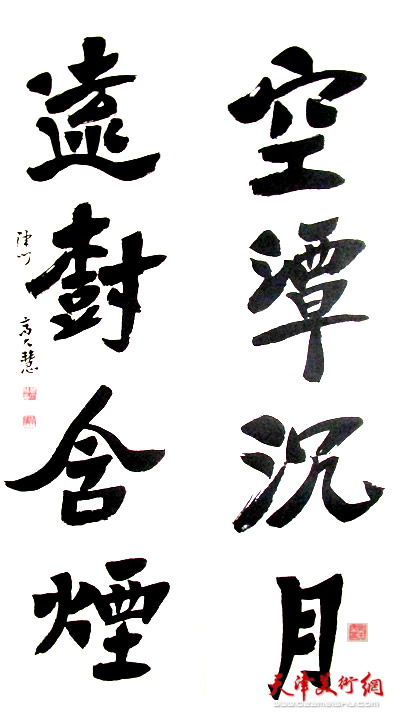 空潭沉月
遠樹含煙
津門 高久慧
天津美術網